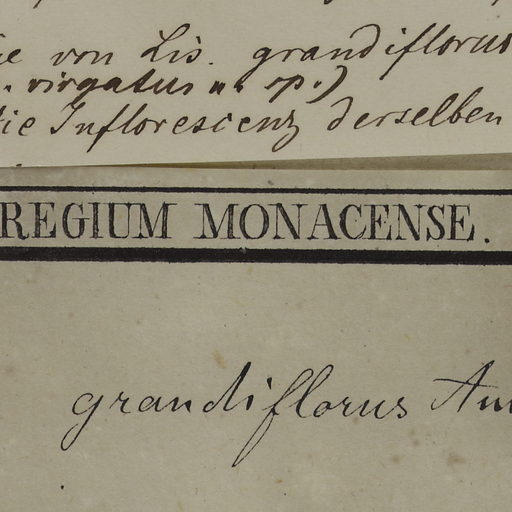 von Lis. grandiflorus
virgatus n. sp.)
die Inflorescenz derselben
REGIUM MONACENSE.
grandiflorus